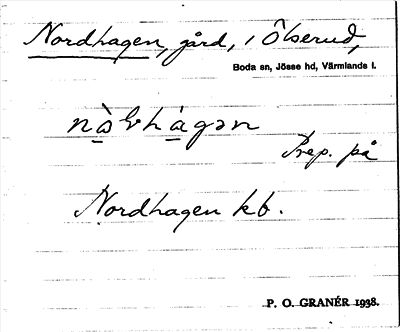 Nordhagen, gård, i Ölserud,
Boda sn, Jösse hd, Värmlands l.
Prep. på
Nordhagen kb.
P. O. GRANÉR 1938.